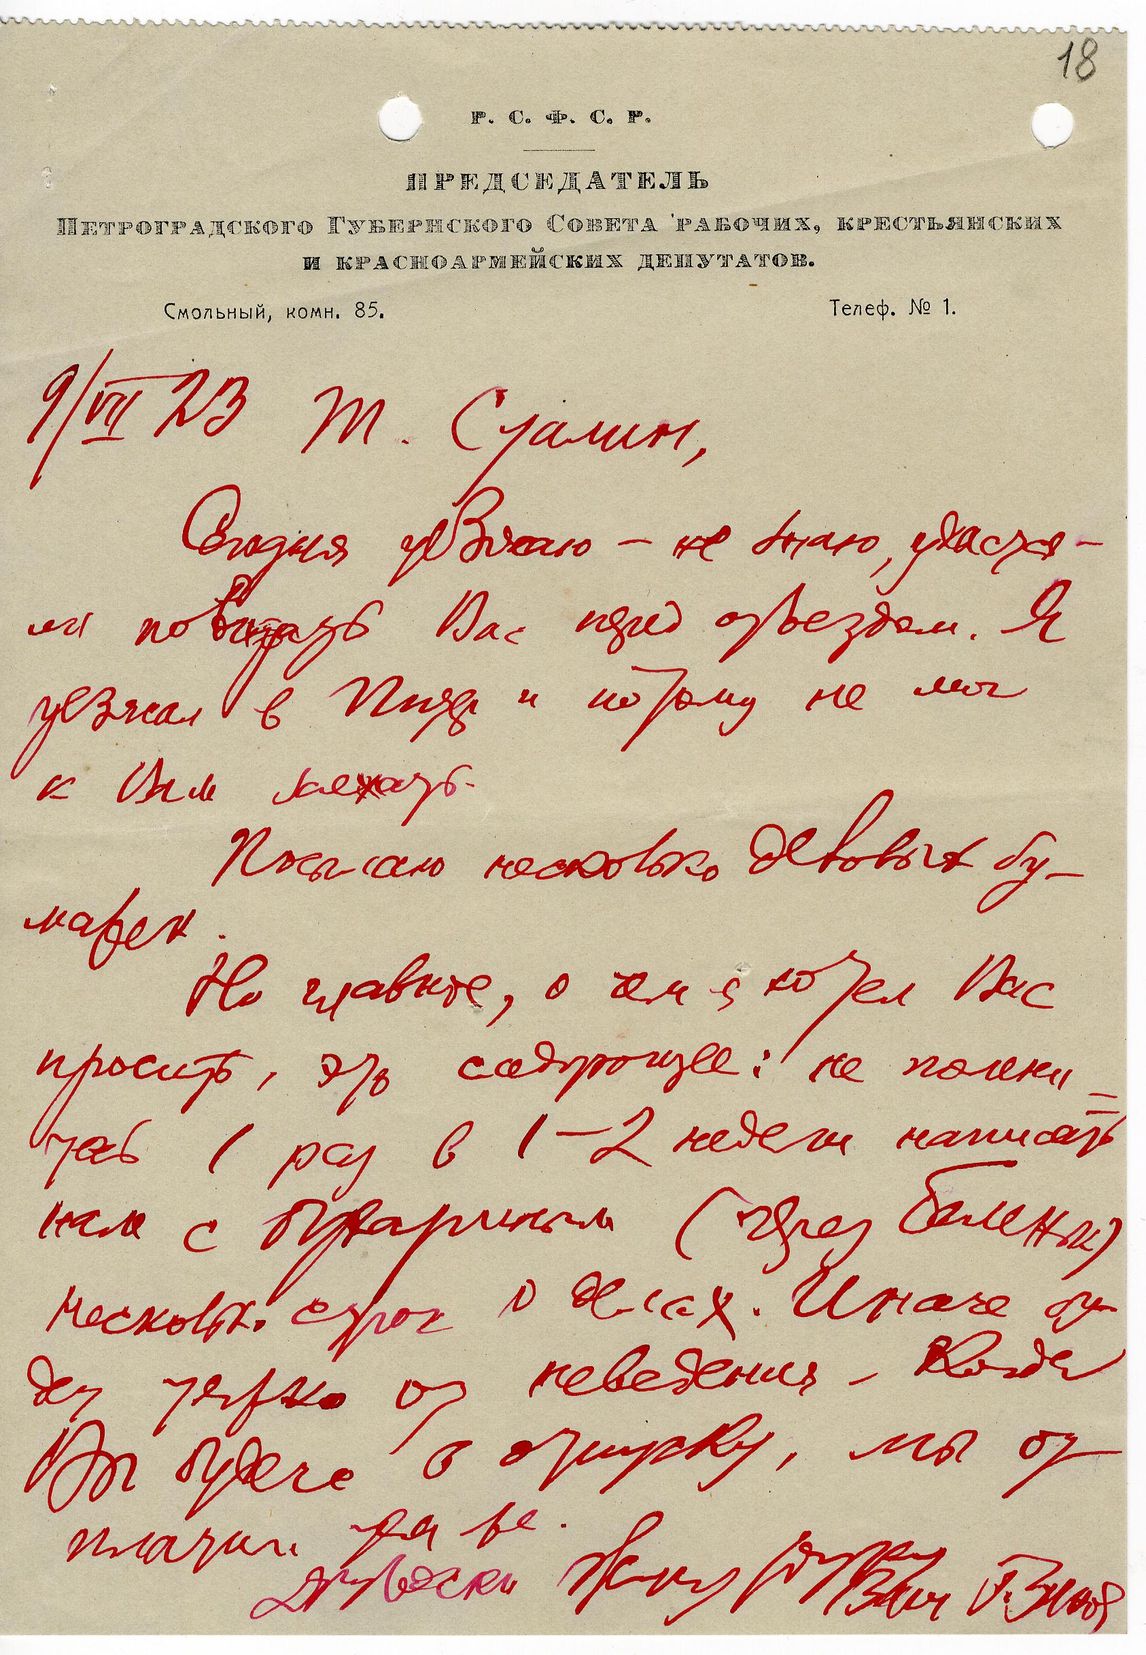 18
Р. С. Ф. С. Р.
ПРЕДСЕДАТЕЛЬ
ПЕТРОГРАДСКОГО ГУБЕРНСКОГО СОВЕТА РАБОЧИХ, КРЕСТЬЯНСКИХ
И КРАСНОАРМЕЙСКИХ ДЕПУТАТОВ.
Смольный, комн. 85. Телеф. № 1.
9/VII 23 Т. Сталин,
Сегодня уезжаю – не знаю, удастся-
ли повидать Вас перед отъездом. Я
уезжал в Питер и потому не мог
к Вам заехать.
Посылаю несколько деловых бу-
мажек.
Но главное, о чем я хотел Вас
просить, это следующее: не полени=
тесь 1 раз в 1–2 недели написать
нам с Бухариным (через Беленьк)
несколько строк о делах. Иначе бу-
дет тяжко от неведения – Когда
Вы будете в отпуску, мы от
платим тем же.
Дружески жму руку
Ваш Г. Зинов